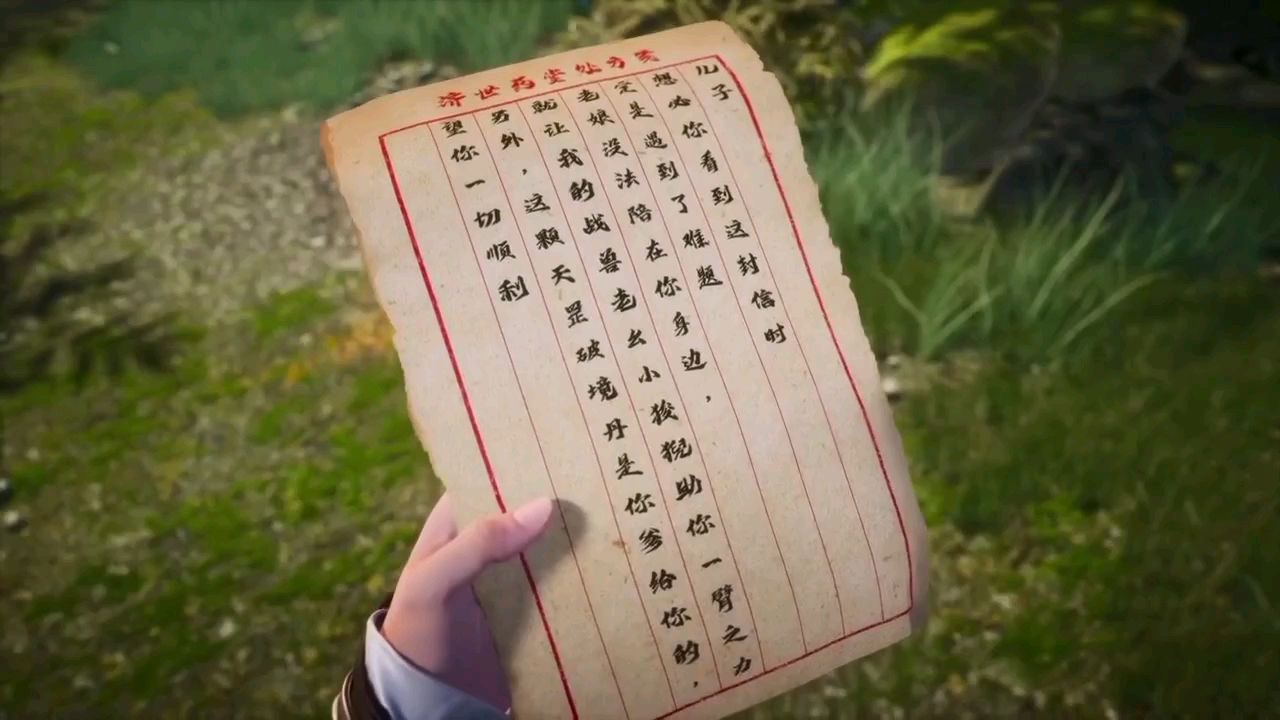 济世药堂处方笺
儿子
想必你看到这封信时
定是遇到了难题
老娘没法陪在你身边，
就让我的战兽老幺小狻猊助你一臂之力
另外，这颗天罡破境丹是你爹给你的，
望你一切顺利